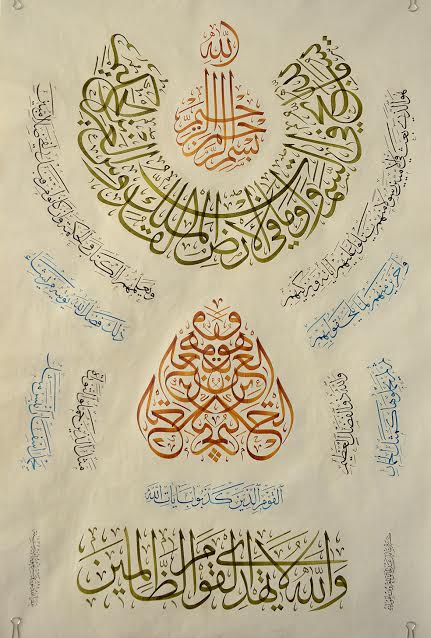 بسم الله الرحمن الرحيم
يسبح لله ما في السموات وما في الارض الملك القدوس العزيز الحكيم
هو الذي بعث في الاميين رسولا منهم يتلو عليهم آياته ويزكيهم
ويعلمهم الكتاب والحكمة وان كانوا من قبل لفي ضلال مبين
وآخرين منهم لما يلحقوا بهم
وهو العزيز الحكيم
ذلك فضل الله يؤتيه من يشاء
والله ذو الفضل العظيم
القوم الذين كذبوا بآيات الله
والله لا يهدي القوم الظالمين